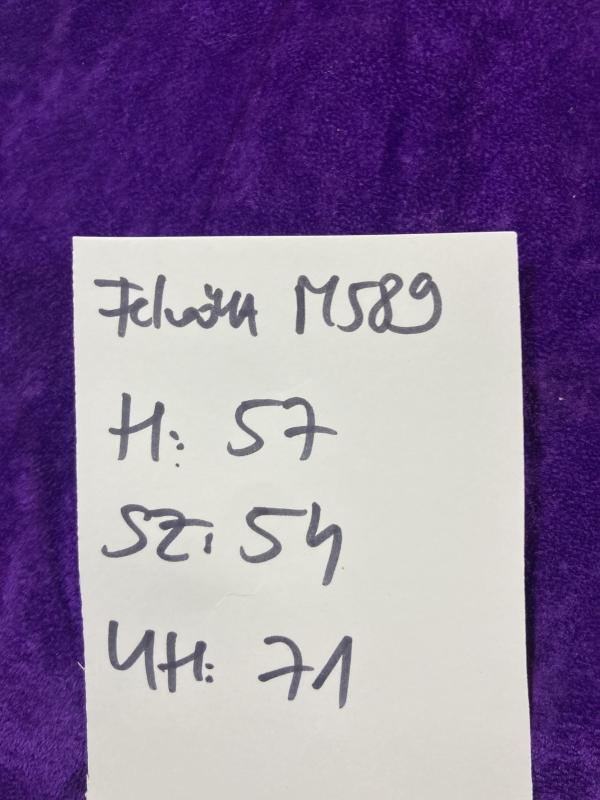 Felnőtt M589
H: 57
SZ: 54
UH: 71